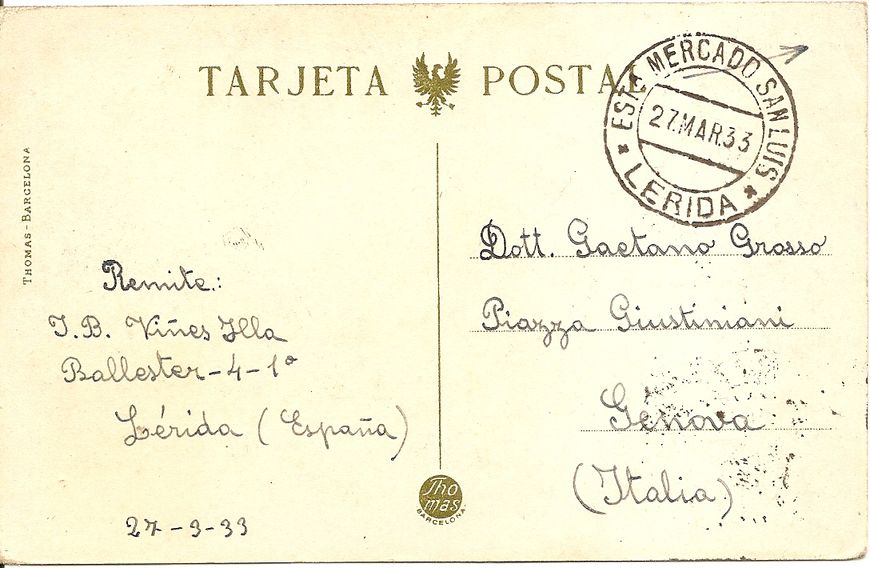 TARJETA POSTAL
ESTA MERCADO SAN LUIS
27.MAR.33
* LERIDA *
THOMAS - BARCELONA
Remite.:
J.B. Viñes Illa
Ballester - 4 - 1º
Lérida (España)
27 - 3 - 33
Dott. Gaetano Grosso
Piazza Giustiniani
Genova
(Italia)
Thomas
BARCELONA